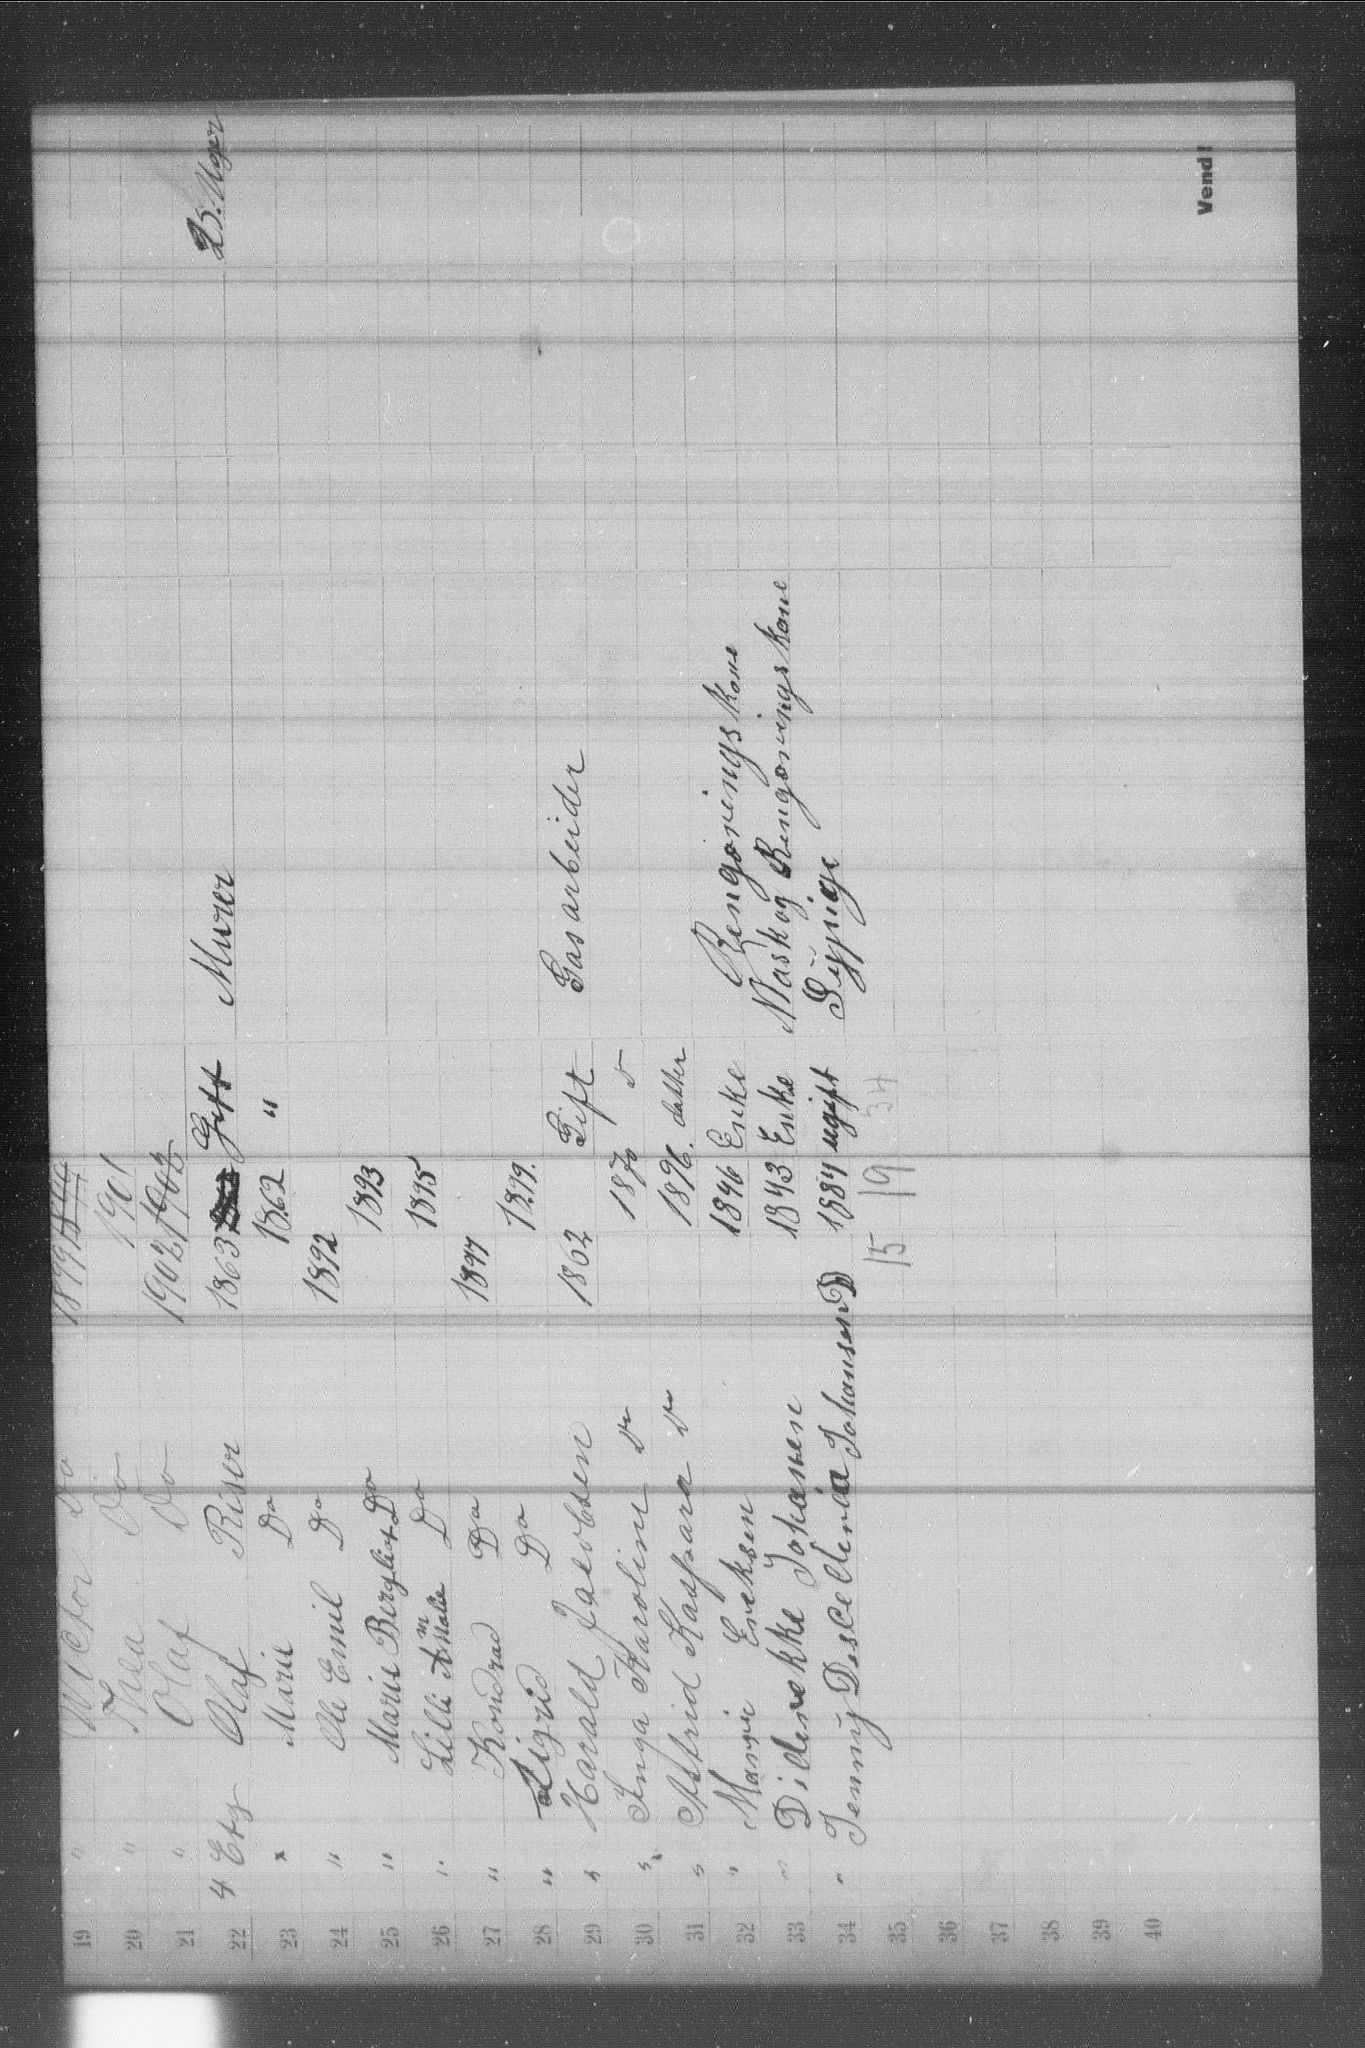 19 " Victor Do 1899 1899
20 " Thea Do 1901
21 " Olaf Do 1902 1902
22 4 Etg Olaf Riser 1863 Gift Murer 25. Uger
23 " Marie Do 1862 "
24 " Ole Emil Do 1892
25 " Marie Bergliot Do 1893
26 " Lilli Amalie Do 1895
27 " Konrad Do 1897
28 " Sigrid Do 1899.
29 " Harald Jacobsen 1862 Gift Gasarbeider
30 " Inga Karoline Do 1870 "
31 " Astrid Kaspara Do 1896. datter
32 " Mangie Ereksen 1846 Enke Rengørings kone
33 " Diderekke Johansen 1843 Enke Vask og Rengørings kone
34 " Jenny Johansen D 1884 ugift Sypige
35 15 19 34
36
37
38
39
40
Vend!